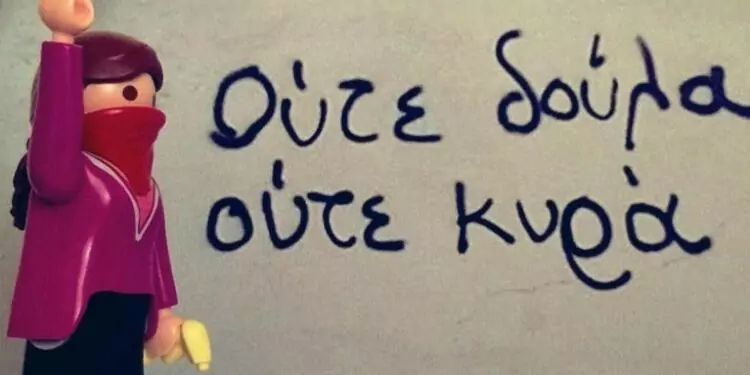 Ούτε δούλα
ούτε κυρὰ